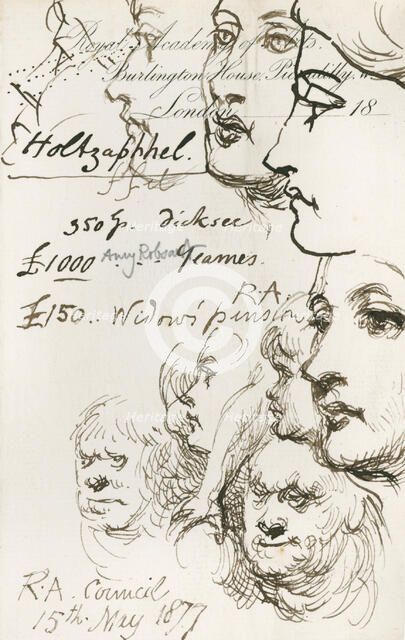 Royal Academy of Arts.
Burlington House, Piccadilly, W.
London 18
Holtzapphel.
350 gs dicksee
£1000 Amy Robsart Yeames.
R.A.
£150.. Widows' pension
R.A. Council
15th May 1877